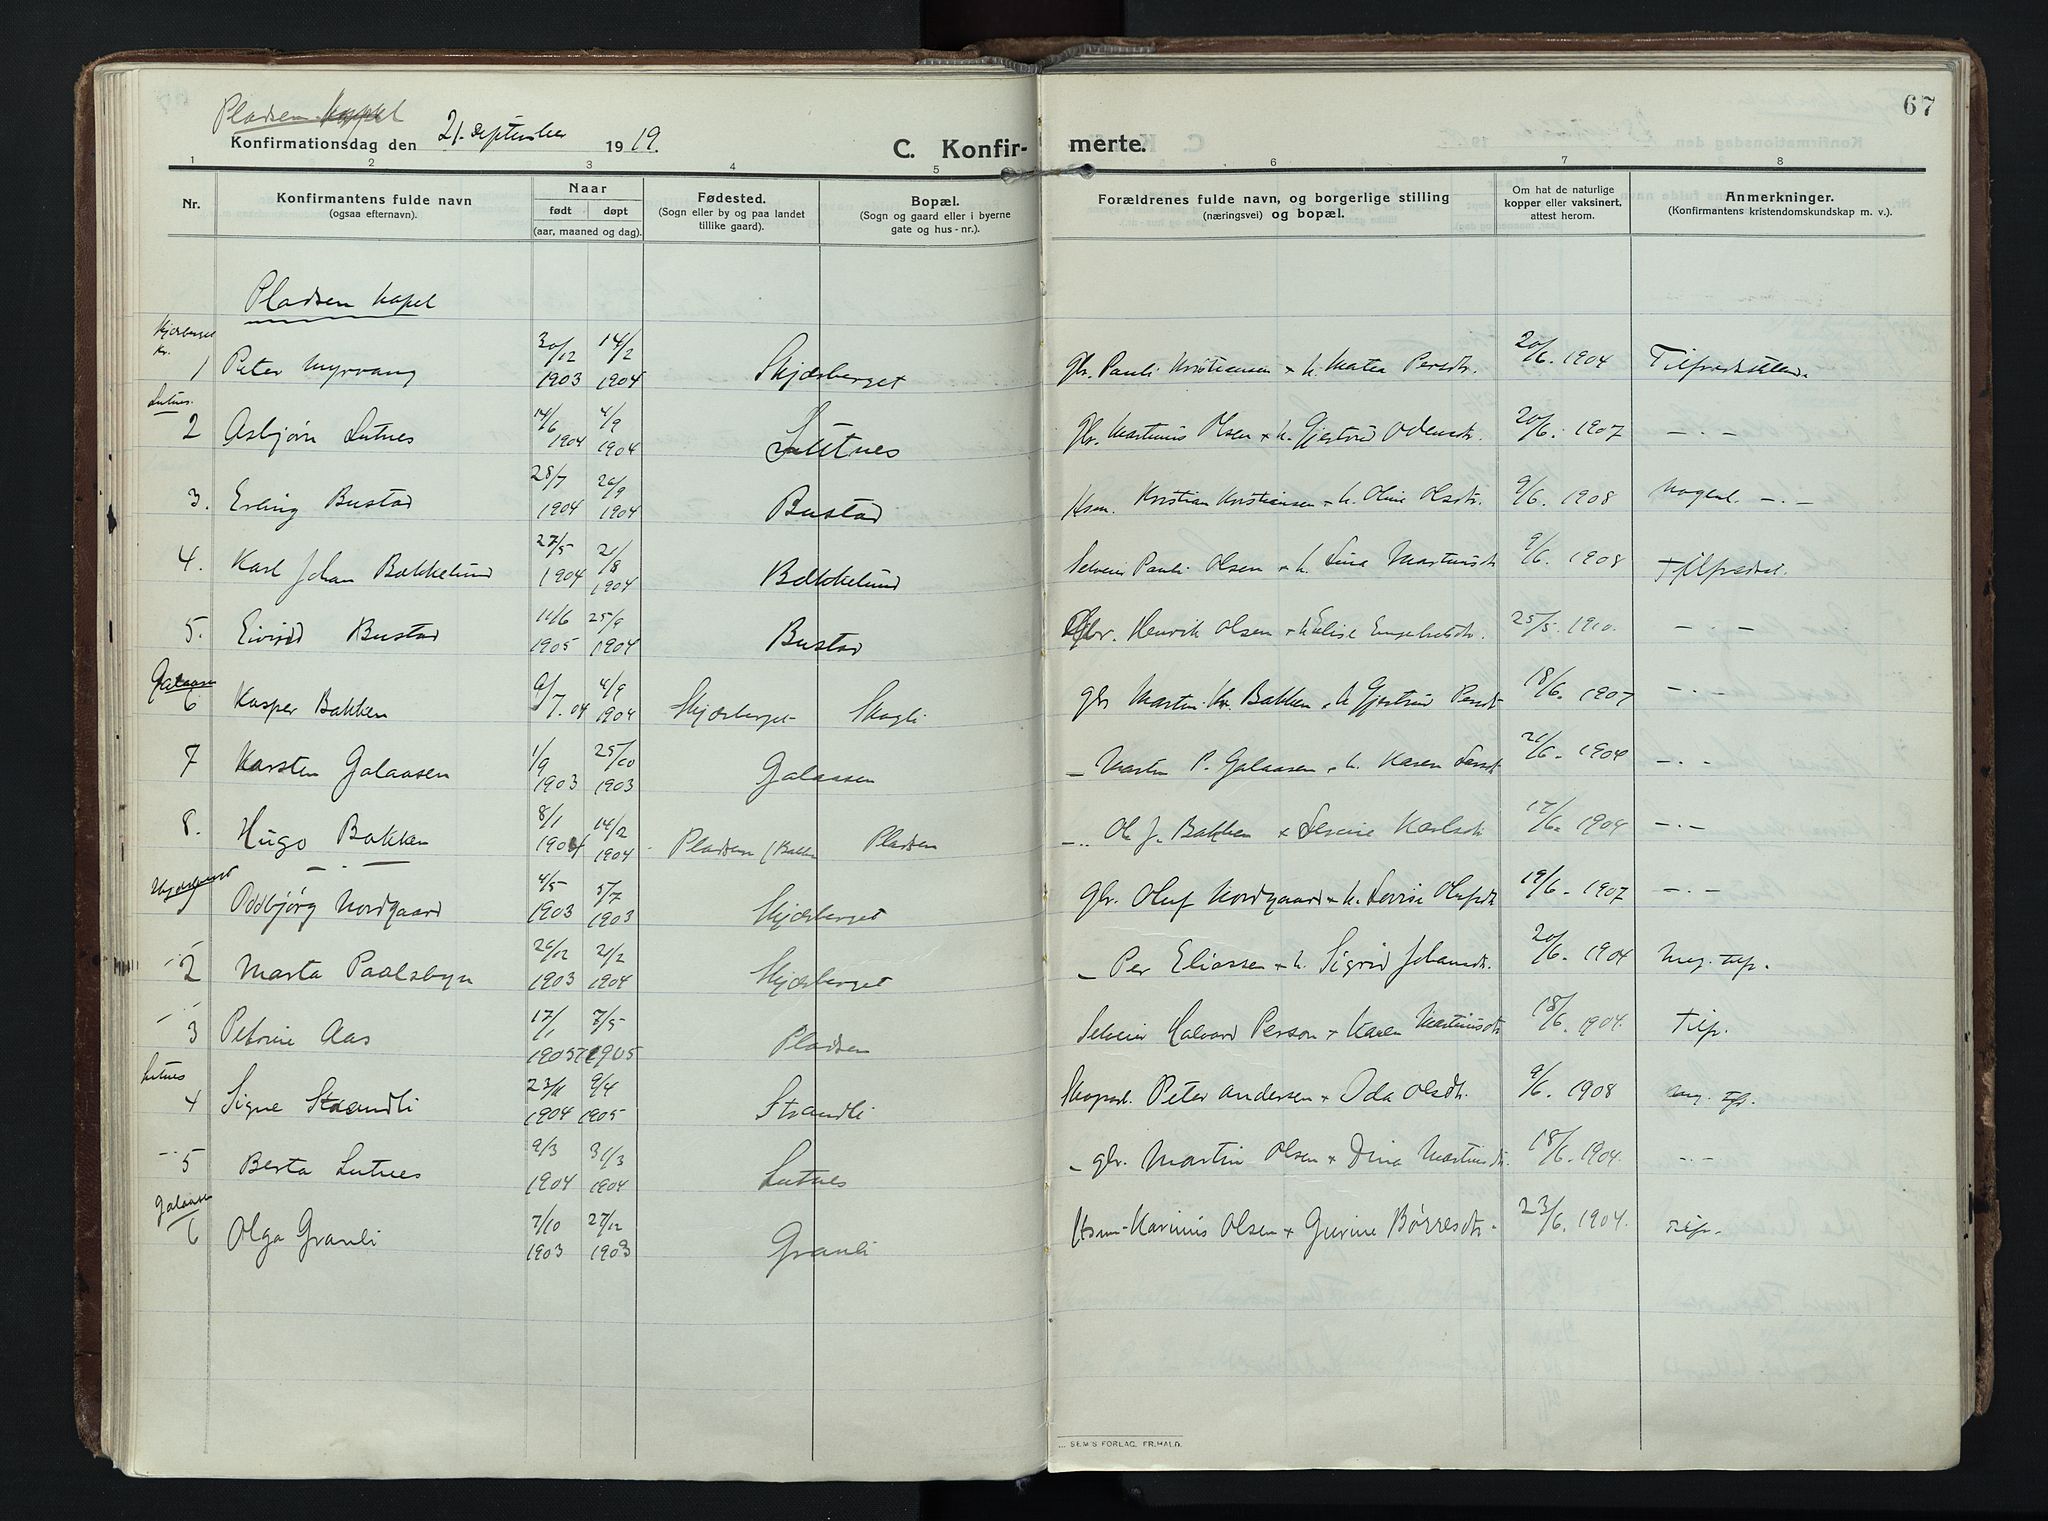 67
Pladsen kapel
Konfirmationsdag den 21. september 1919.
C. Konfirmerte.
1 2 3 4 5 6 7 8
Nr.
Konfirmantens fulde navn
(ogsaa efternavn).
Naar
født døpt
(aar, maaned og dag).
Fødested.
(Sogn eller by og paa landet
tillike gaard).
Bopæl.
(Sogn og gaard eller i byerne
gate og hus-nr.).
Forældrenes fulde navn, og borgerlige stilling
(næringsvei) og bopæl.
Om hat de naturlige
kopper eller vaksinert,
attest herom.
Anmerkninger.
(Konfirmantens kristendomskundskap m. v.).
Pladsen kapel
Skjærberget kr.
1 Peter Myrvang 30/12 1903 14/2 1904 Skjærberget gbr. Pauli Kristiansen + h. Matea Persdtr. 20/6. 1904 Tilfredsstillende
Lutnes.
2 Asbjørn Lutnes 14/6 1904 4/9 1904 Lutnes gbr. Martinus Olsen + h. Gjertrud Odensdtr. 20/6. 1907 — . —
3. Erling Bustad 28/7 1904 26/9 1904 Bustad Hsm. Kristian Kristiansen + h. Oline Olsdtr. 9/6. 1908 Nogenl. — . —
4. Karl Johan Bakkelund 27/5 1904 21/8 1904 Bakkelund Selveier Pauli Olsen + h. Lina Martinusdtr. 9/6. 1908 Tilfredsst.
5. Eivind Bustad 11/6 1905 25/9 1904 Bustad Gbr. Henrik Olsen + h. Elise Engebretsdtr. 25/5. 1910. — . —
Galaasen
6 Kasper Bakken 9/7.04 4/9 1904 Skjærberget Skogli gbr Martin Kr. Bakken + h Gjertrud Persdtr 18/6. 1907 — . —
7 Karsten Galaasen 1/9 1903 25/10 1903 Galaasen — Martin P. Galaasen + h. Karen Larsdtr 21/6. 1904 — . —
8. Hugo Bakken 8/1 1904 14/2 1904 Pladsen (Bakken Pladsen — .. Ole J. Bakken + Lovise Karlsdtr 17/6. 1904 — . —
— . —
Skjærberget
Oddbjørg Nordgaard 4/5 1903 5/7 1903 Skjærberget gbr. Oluf Nordgaard + h. Lovise Olufsdtr 19/6. 1907 — . —
2 Marta Paalsbyn 26/12 1903 21/2 1904 Skjærberget — Per Eliassen + h. Sigrid Johansdtr. 20/6. 1904 Meg. tilf.
3 Petrine Aas 17/1 1905 7/5 1905 Pladsen Selveier Halvard Person + Karen Martinusdtr 18/6. 1904. Tilf.
Lutnes
4 Signe Strandli 23/11 1904 9/4 1905 Strandli Skogsarb. Peter Andersen + Oda Olsdtr. 9/6. 1908
5 Berta Lutnes 9/3 1904 31/3 1904 Lutnes — gbr. Martin Olsen + Dina Martinsdtr. 18/6. 1904. — . —
Galaasen
6 Olga Granli 7/10 1903 27/12 1903 Granli Hsm. Karinius Olsen + Gurine Børresdtr. 23/6. 1904. Tilf.
SEM'S FORLAG, FR.HALD.